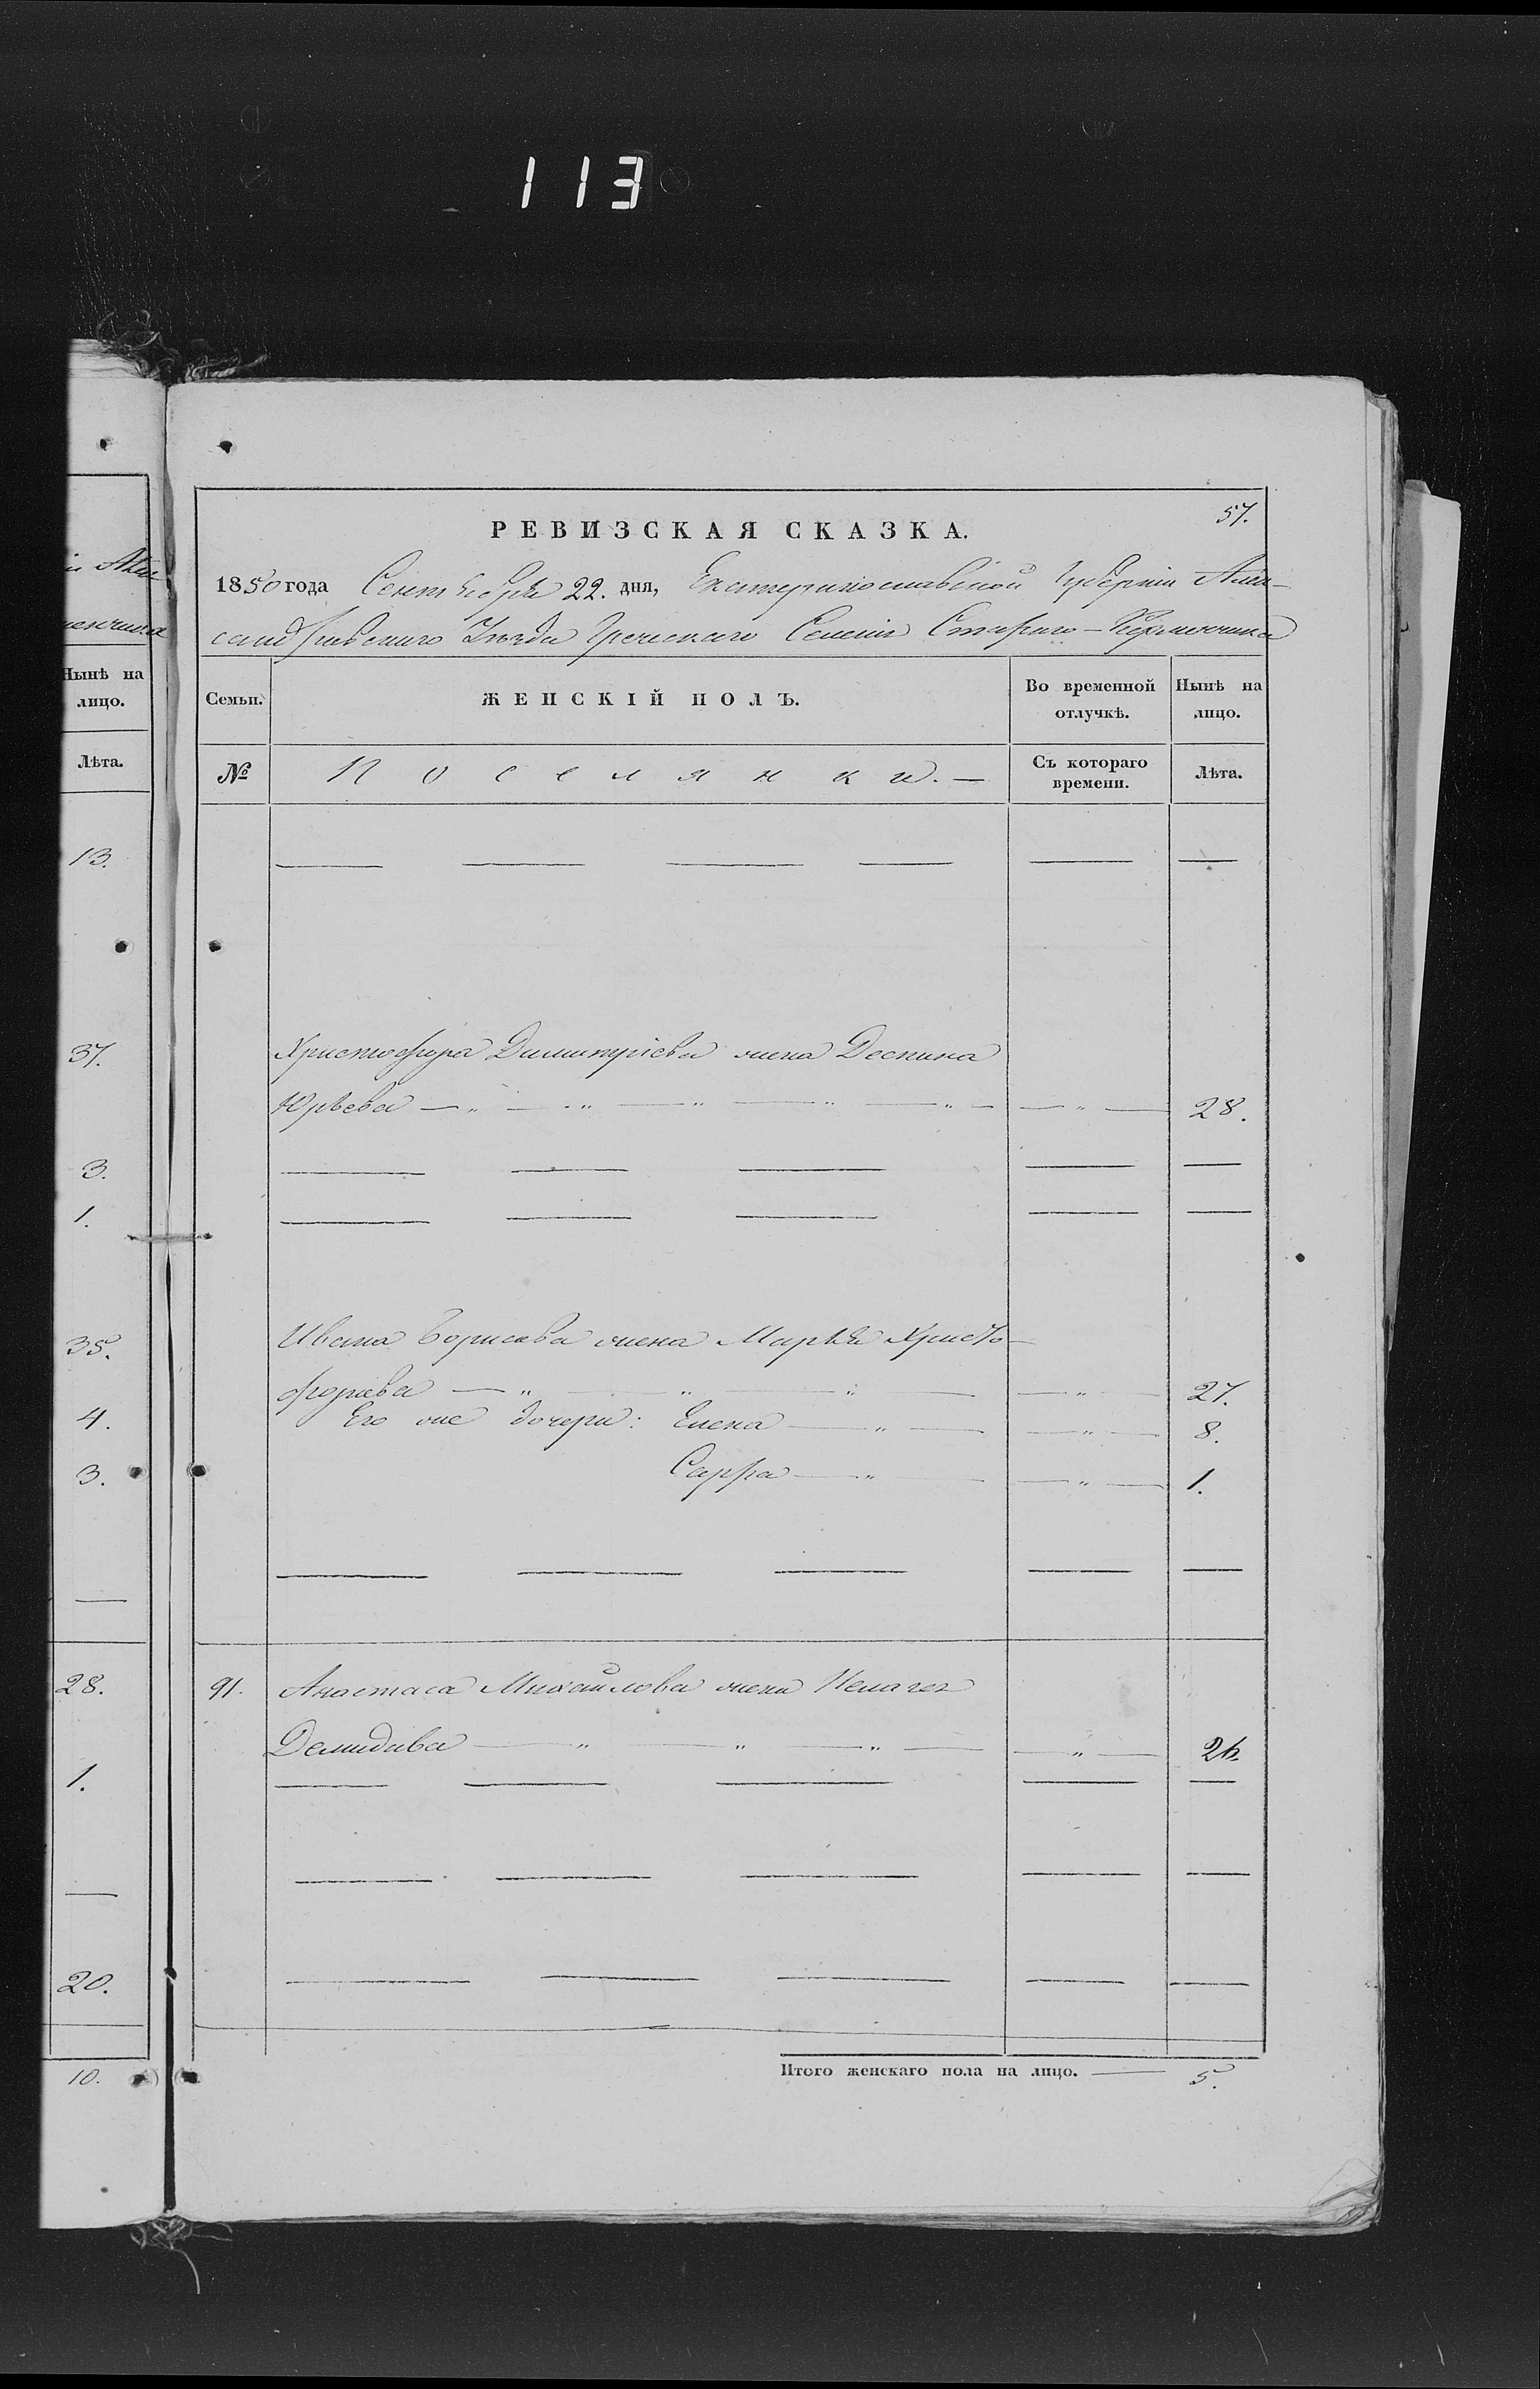 113
57.
РЕВИЗСКАЯ СКАЗКА.
1850 года Сентября 22. дня, Екатеринославской Губерніи Алек-
сандровскаго Уезда Греческаго Селенія Стараго-Керменчика
Нынѣ на
лицо.
Лѣта.
Семьи.
ЖЕНСКІЙ ПОЛЪ.
Во временной
отлучкѣ.
Нынѣ на
лицо.
№
Поселянки.
Съ котораго
времени.
Лѣта.
13.
37.
Христофора Димитріева жена Деспина
Юрьева 28.
3.
1.
35.
Ивана Борисова жена Марья Христо-
форова 27.
4.
Его же дочери: Елена 8.
3.
Сарра 1.
28.
91. Анастаса Михайлова жена Пелагея
Демидова 26.
1.
20.
10.
Итого женскаго пола на лицо. 5.